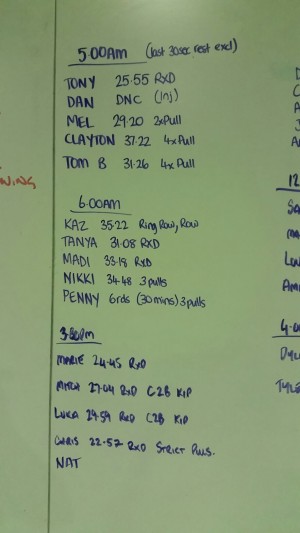 5:00AM (last 30sec rest excl)
TONY 25.55 RXD
DAN DNC (Inj)
MEL 29.20 2xPull
CLAYTON 37.22 4xPull
TOM B 31.26 4xPull
6:00AM
KAZ 35.22 Ring Row, Row
TANYA 31.08 RXD
MADI 33.19 RXD
NIKKI 34.48 3pulls
PENNY 6rds (30mins) 3pulls
3:30PM
MARIE 24.45 RXD
MITCH 27.04 RXD C2B KIP
LUKA 29.59 RXD C2B KIP
CHRIS 22.57 RXD STRICT PULLS.
NAT
NING
12
SA
MA
AM
4:0
DYL
TYLE